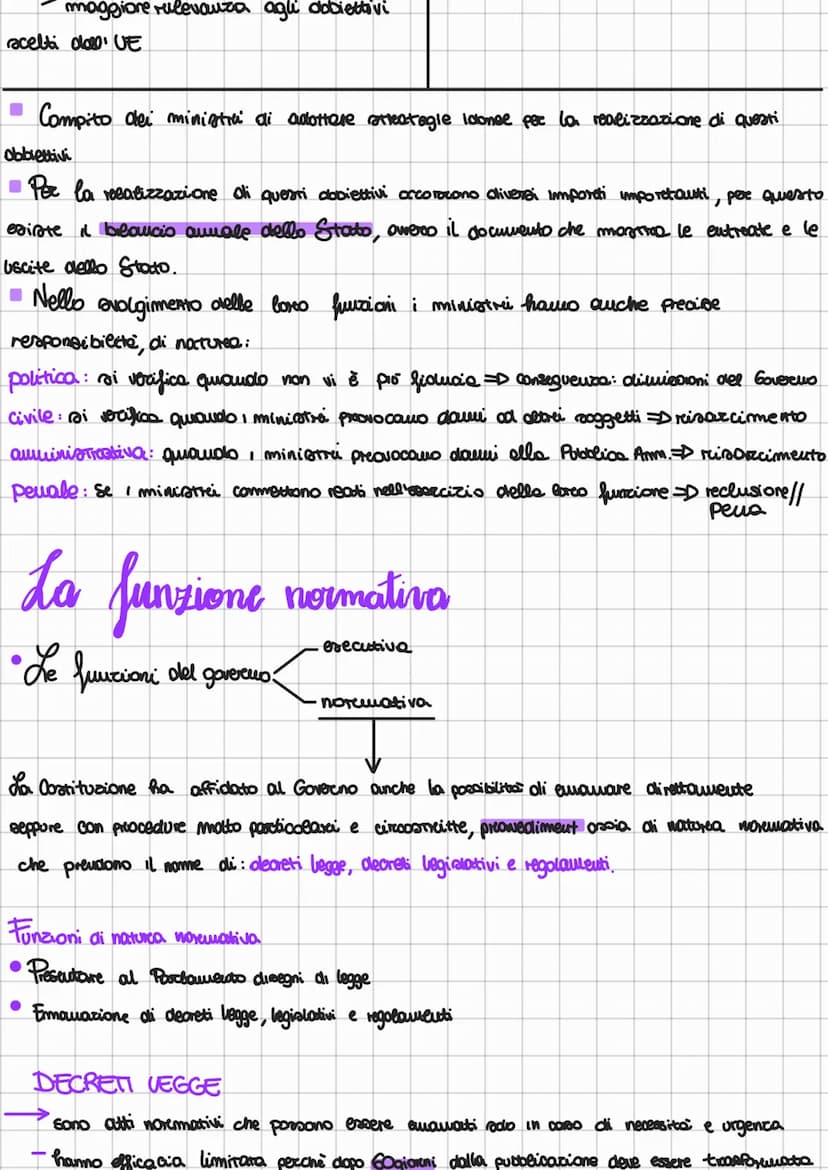 - maggiore rilevanza agli obbiettivi
scelti dall' UE
Compito dei ministri di adottare strategie idonee per la realizzazione di questi
obbiettivi
Per la realizzazione di questi obbiettivi occorrono diversi importi importanti, per questo
esiste il bilancio annuale dello Stato, ovvero il documento che mostra le entrate e le
uscite dello Stato.
Nello svolgimento delle loro funzioni i ministri hanno anche precise
responsabilità, di natura:
politica: si verifica quando non vi è più fiducia => conseguenza: dimissioni del Governo
civile: si verifica quando i ministri provocano danni ad altri soggetti => risarcimento
amministrativa: quando i ministri provocano danni alla Pubblica Amm. => risarcimento
penale: se i ministri commettono reati nell'esercizio della loro funzione => reclusione//
pena
La funzione normativa
• Le funzioni del governo:
esecutiva
normativa
La Costituzione ha affidato al Governo anche la possibilità di emanare direttamente
seppure con procedure molto particolari e circoscritte, provvediment ossia di natura normativa
che prendono il nome di: decreti legge, decreti legislativi e regolamenti.
Funzioni di natura normativa
• Presentare al Parlamento disegni di legge
• Emanazione di decreti legge, legislativi e regolamenti
DECRETI LEGGE
→ sono atti normativi che possono essere emanati solo in caso di necessità e urgenza
- hanno efficacia limitata perchè dopo 60giorni dalla pubblicazione deve essere trasformata